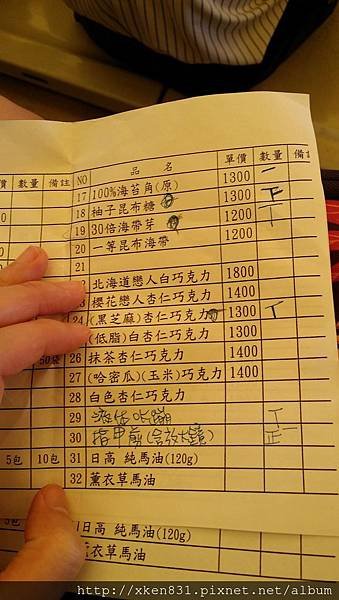 價 數量 備註 NO 品名 單價 數量 備註
17 100%海苔角(原) 1300 一
18 柚子昆布糖 1300 下
19 30倍海帶芽 1200 丅
20 一等昆布海帶 1200
21
北海道戀人白巧克力 1800
櫻花戀人杏仁巧克力 1400
24 (黑芝麻)杏仁巧克力 1300 丅
(低脂)白杏仁巧克力 1300
50袋 26 抹茶杏仁巧克力 1400
27 (哈密瓜)(玉米)巧克力 1400
28 白色杏仁巧克力
29 丅
30 指甲剪(含放大鏡) 正一
5包 10包 31 日高 純馬油(120g)
32 薰衣草馬油
5包 日高 純馬油(120g)
薰衣草馬油
http://xken831.pixnet.net/album